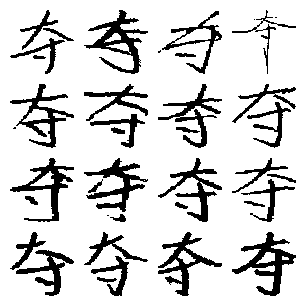 夺夺夺夺
夺夺夺夺
夺夺夺夺
夺夺夺夺